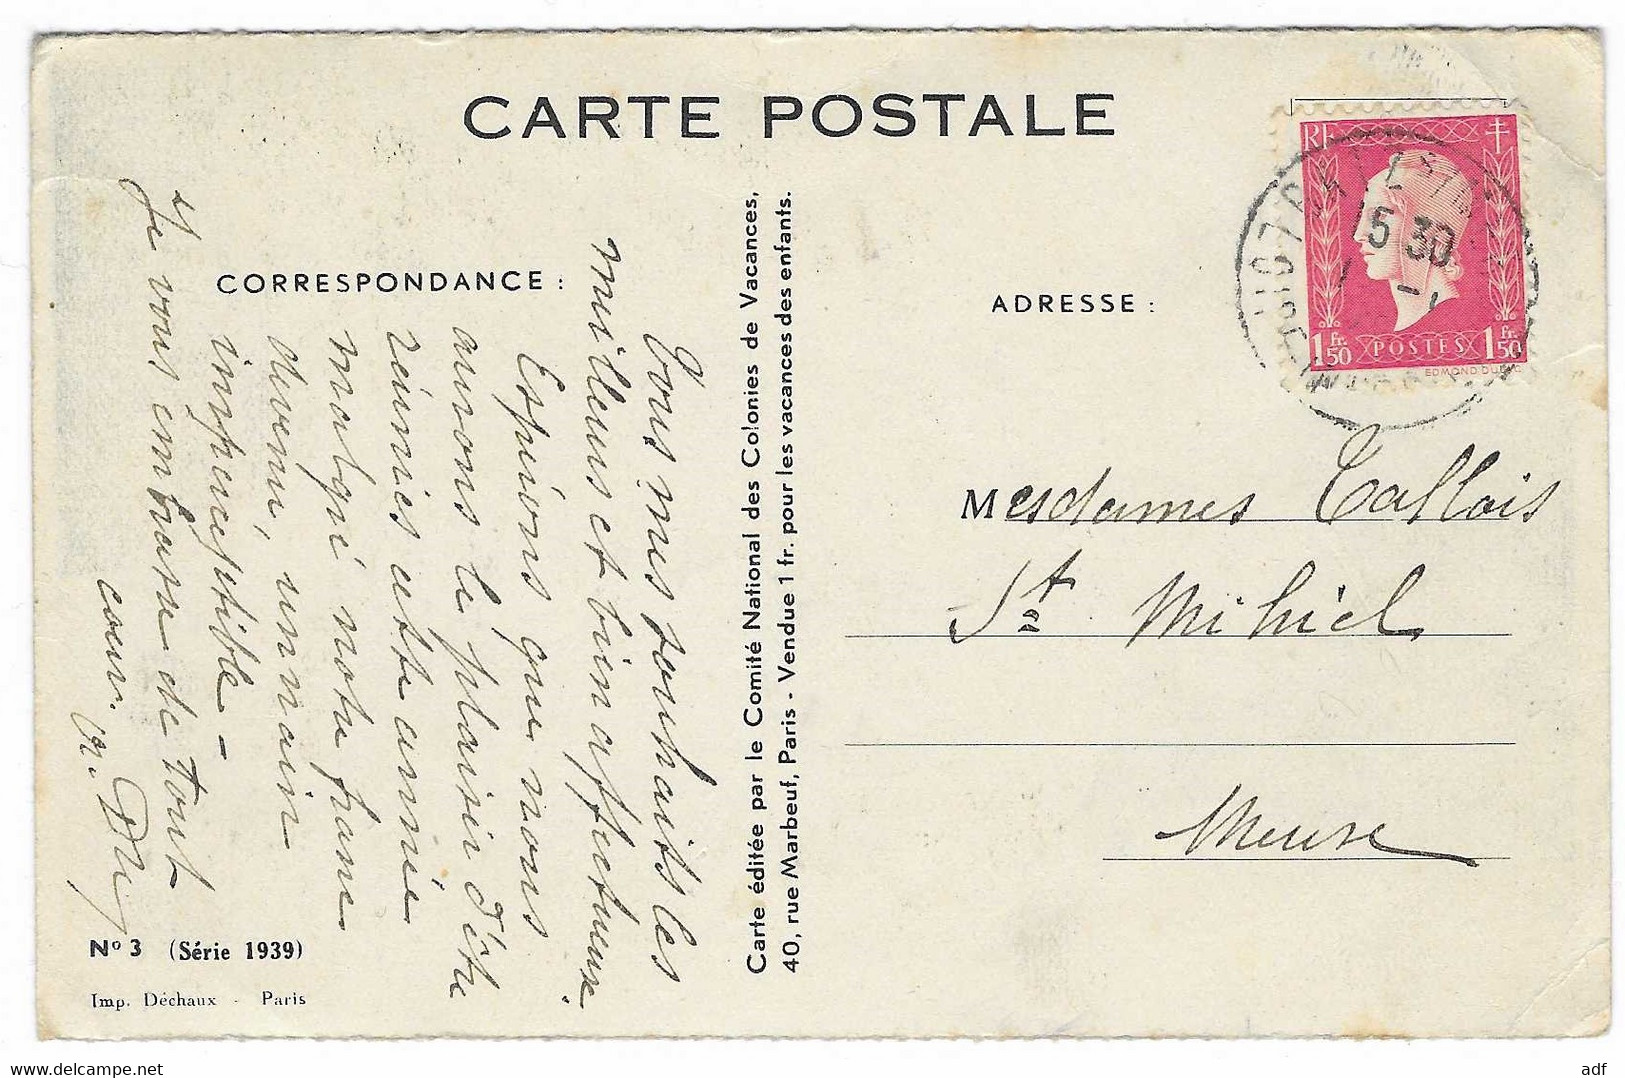 CARTE POSTALE
CORRESPONDANCE :
ADRESSE :
RF
15 30
1 Fr. 50
POSTES
1 Fr. 50
EDMOND DULAC
Tous mes souhaits les
meilleurs et bien affectueux.
Espérons que nous
aurons le plaisir d'être
réunies cette année
malgré notre
devenu, un nain
imperceptible –
Je vous embrasse de tout
cœur.
Carte éditée par le Comité National des Colonies de Vacances,
40, rue Marbeuf, Paris - Vendue 1 fr. pour les vacances des enfants.
Mesdames Tallois
St Mihiel
Meuse
Nº 3 (Série 1939)
Imp. Déchaux - Paris